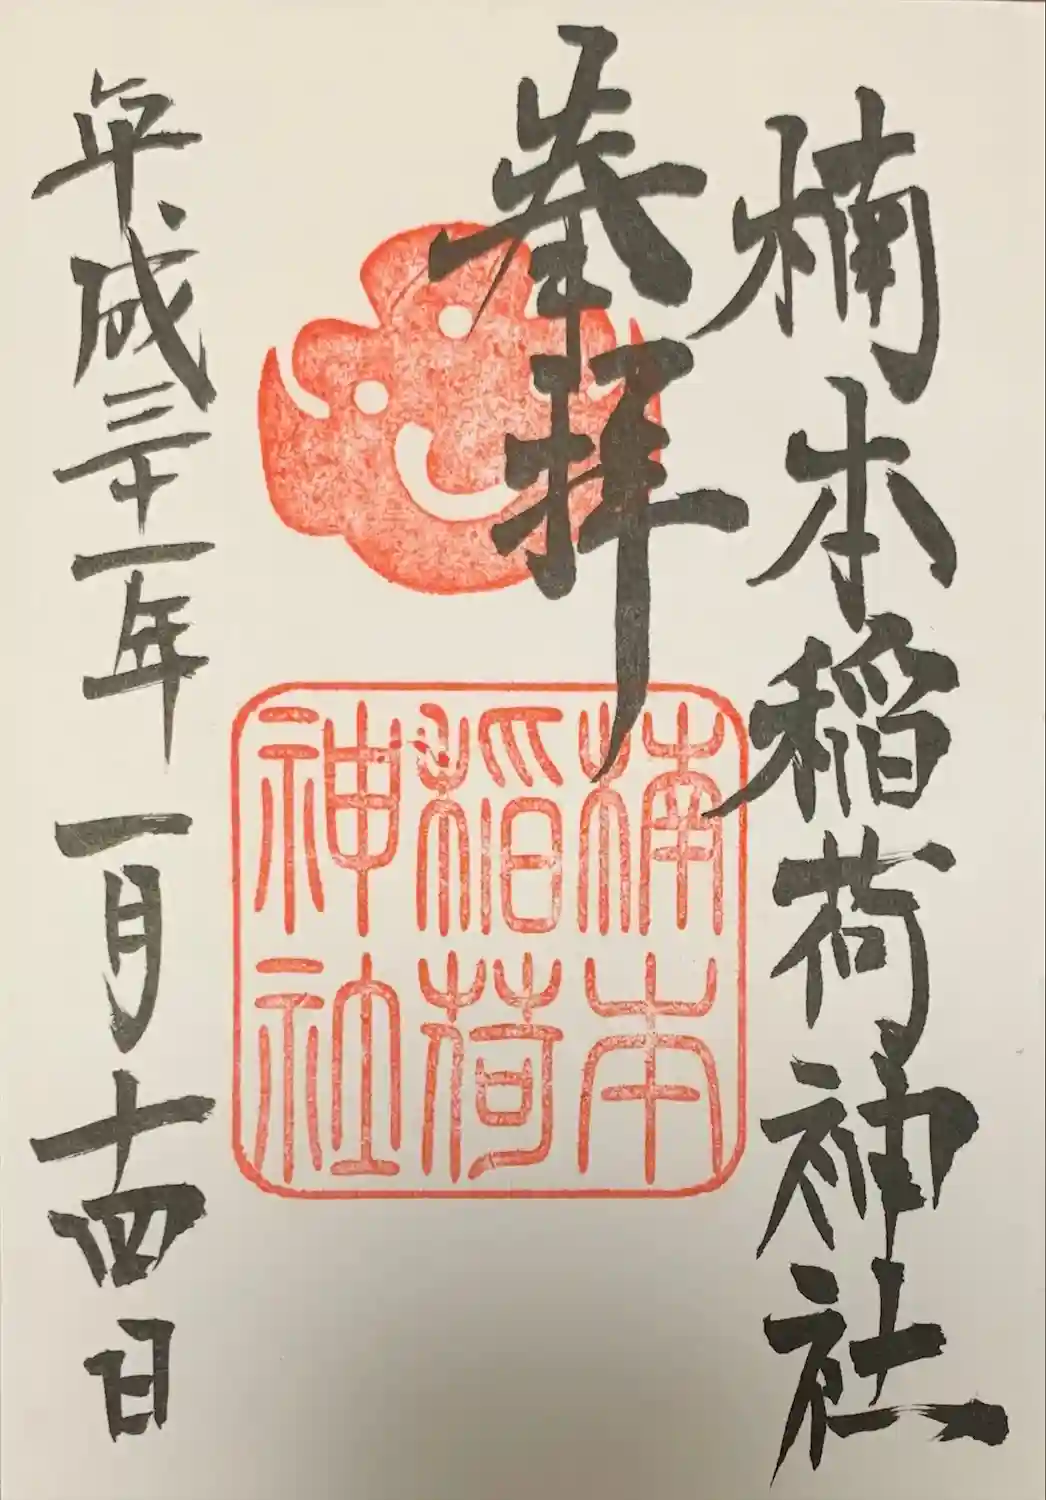 楠本稲荷神社
奉拝
楠本
稲荷
神社
平成三十一年 一月十四日